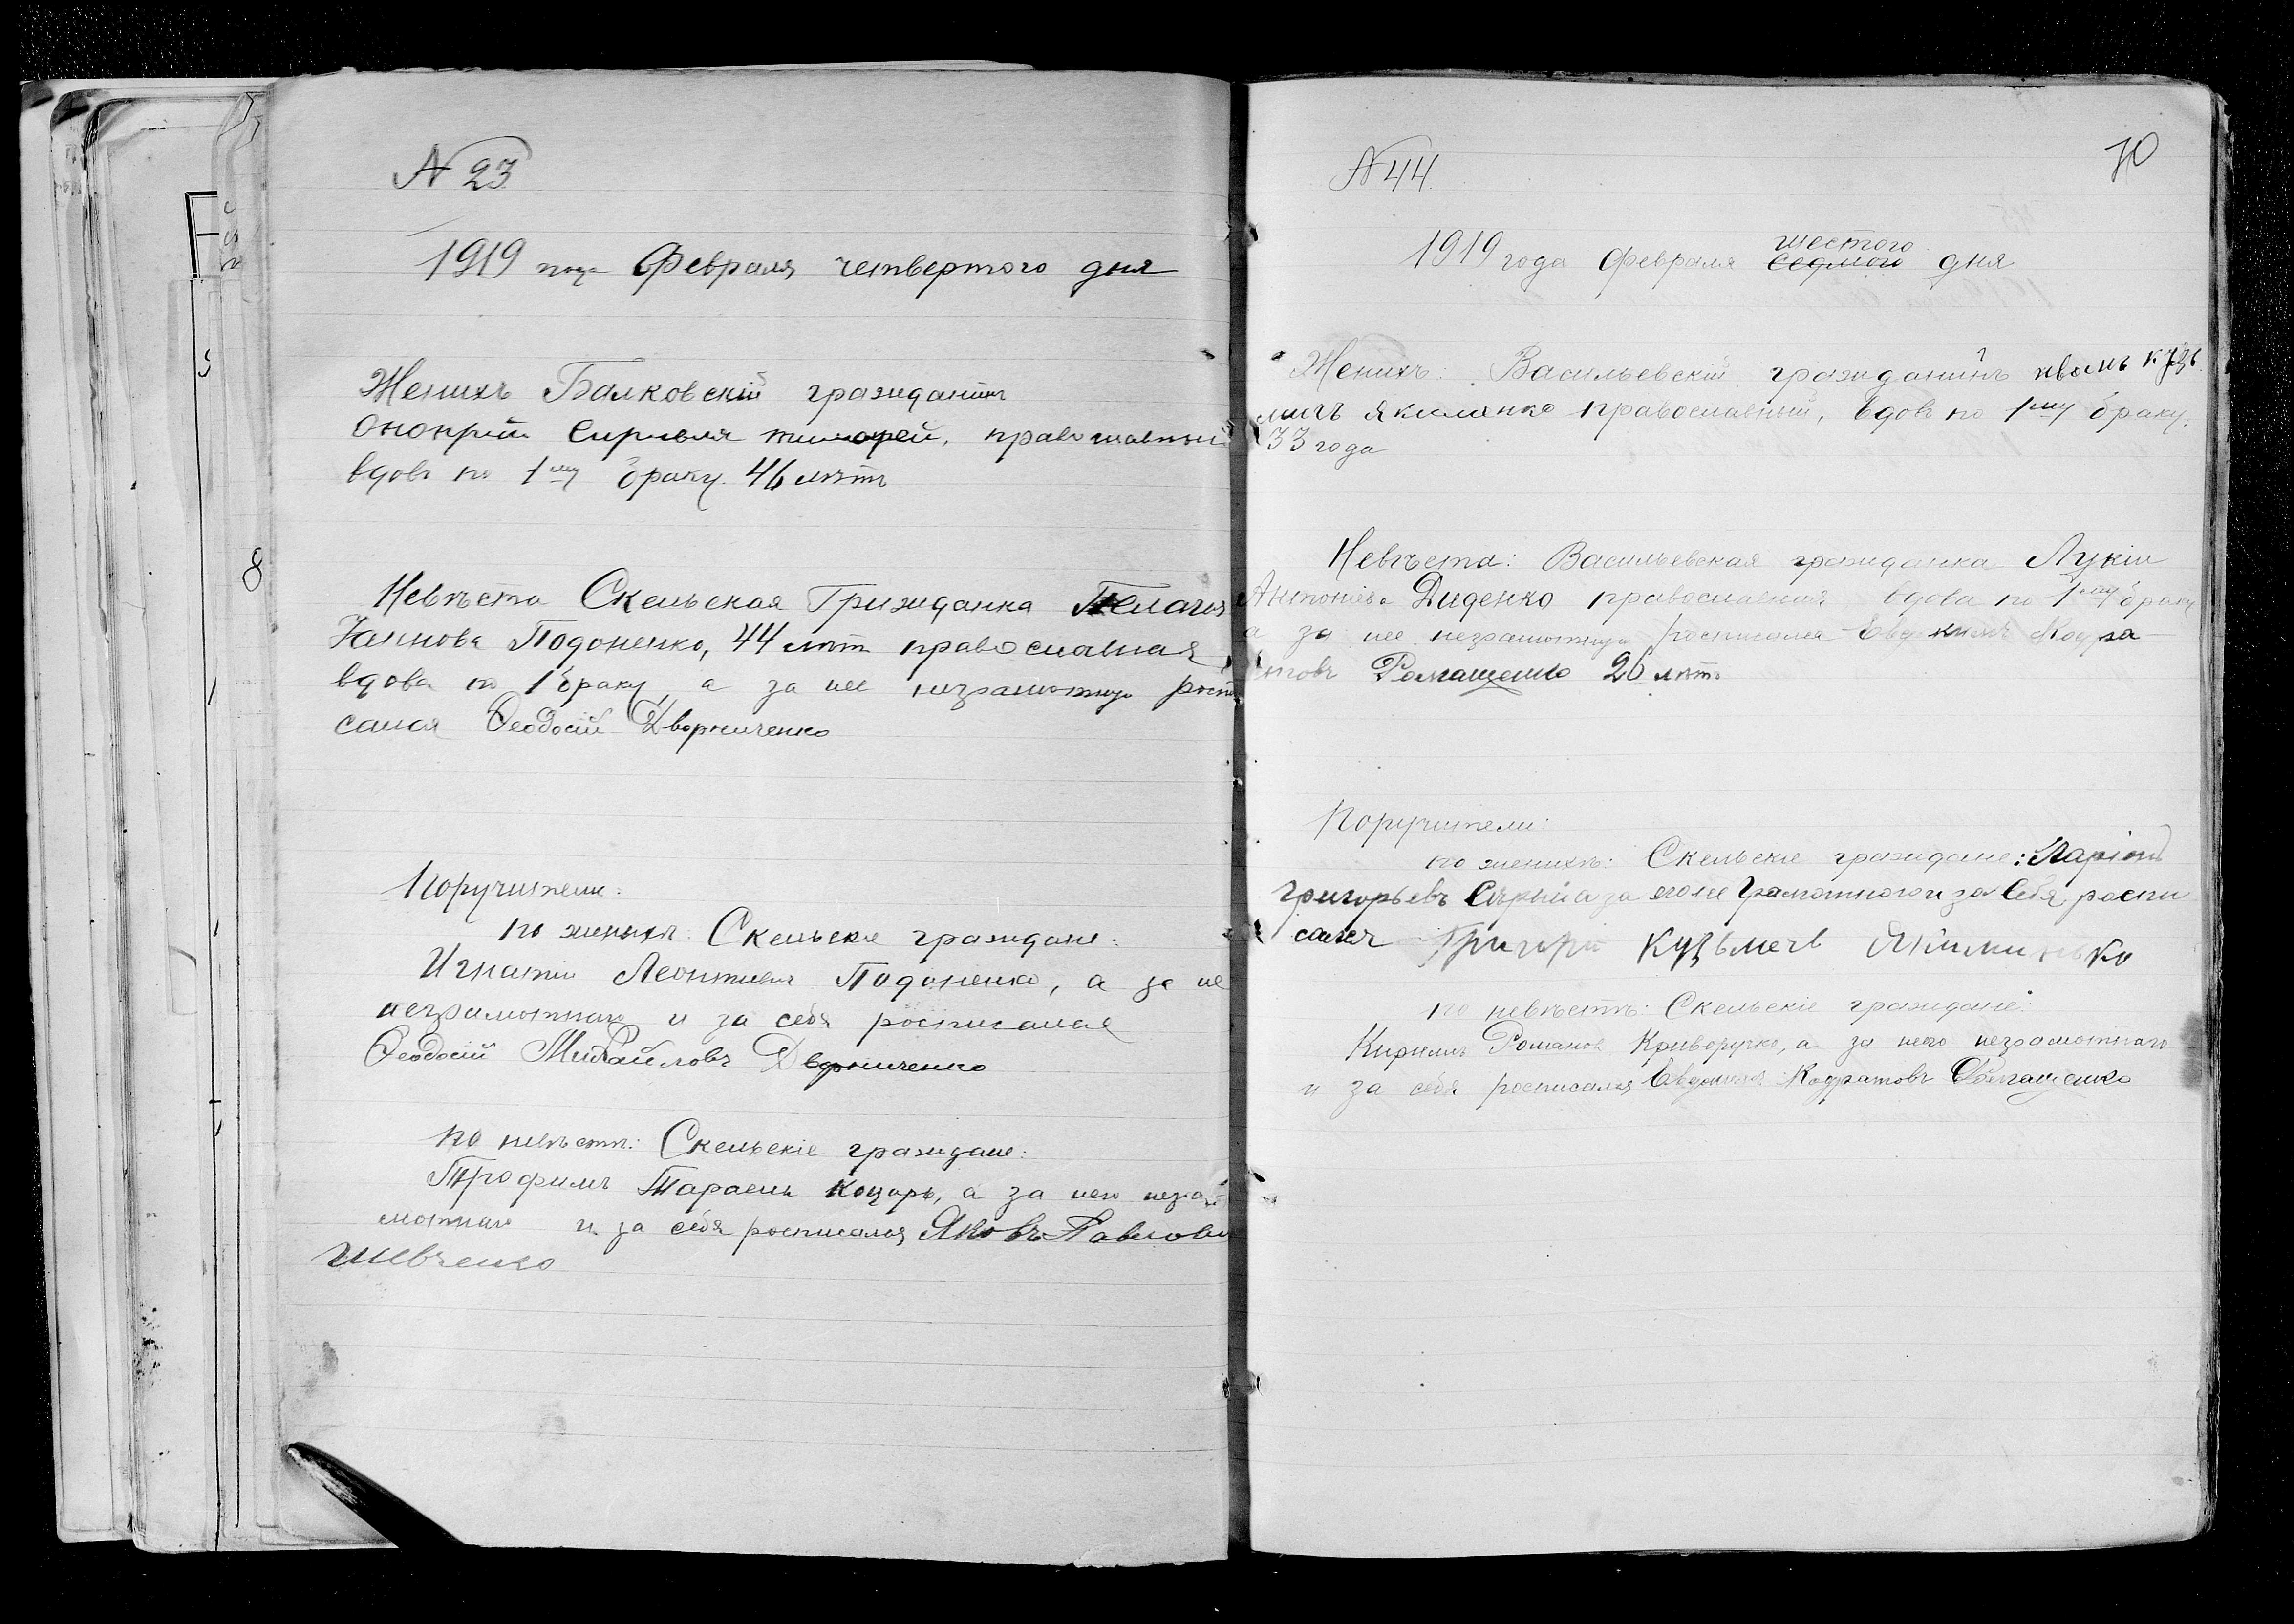 N 23
1919 года Февраля четвертого дня
Женихъ Балковскій гражданинъ
православный
вдовъ по 1му браку. 46 лѣтъ
Невѣста Скельская Гражданка Пелагея
Подоненко, 44 лѣт православная
вдова по 1 браку, а за нее неграмотную роспи
сался Феодосій Дворниченко
Поручители:
по женихѣ: Скельскіе граждане:
Игнатій Леонтьевъ Подоненко, а за не
неграмотнаго и за себя росписался
Феодосій Михайловъ Дворниченко
по невѣстѣ: Скельскіе граждане:
Трофимъ Тарасъ Коцарь, а за него негра
мотнаго и за себя росписался Яковъ Павловъ
Шевченко
70
N 44.
1919 года Февраля шестого седмого дня
Женихъ: Васильевскій гражданинъ Иванъ Кузь
мичъ Якименко православный, вдовъ по 1му браку.
33 года
Невѣста: Васильевская гражданка Лукія
Антоніева Диденко православная вдова по 1му браку
а за нее неграмотную росписался Евдокимъ Кодра-
товъ Ромащенко 26 лѣтъ
Поручители:
по женихѣ: Скельскіе граждане: Ларіонъ
Григорьевъ Сѣрый а за его не грамотного и за себя роспи
сался Григорій Кузьмечь Якименько
по невѣстѣ: Скельскіе граждане:
Кирилъ Романов Криворучко, а за него неграмотнаго
и за себя росписался Евдокимъ Кодратовъ Ромащенко